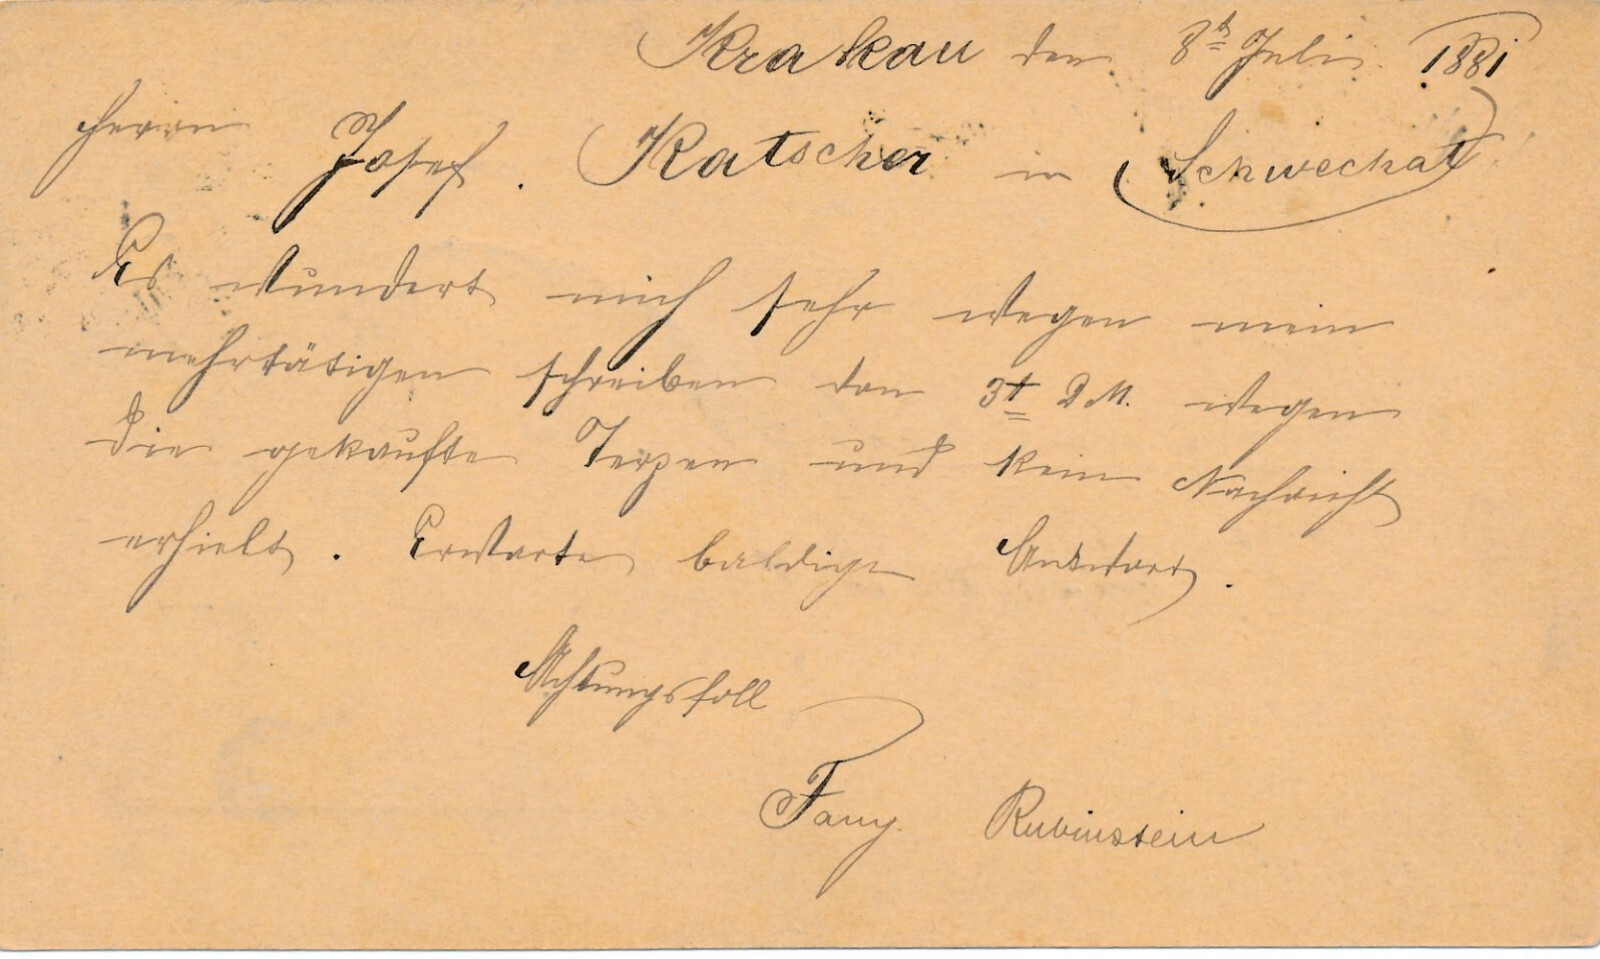 Krakau den 8t Juli 1881
Herrn Josef Katscher in Schwechat
Es wundert mich sehr wegen mein
mehrtätigen schreiben von 3t D.M. wegen
die gekaufte Terzen und kein Nachricht
erhielt. Erwarte baldige Antwort.
Achtungsfoll
Fany Rubinstein